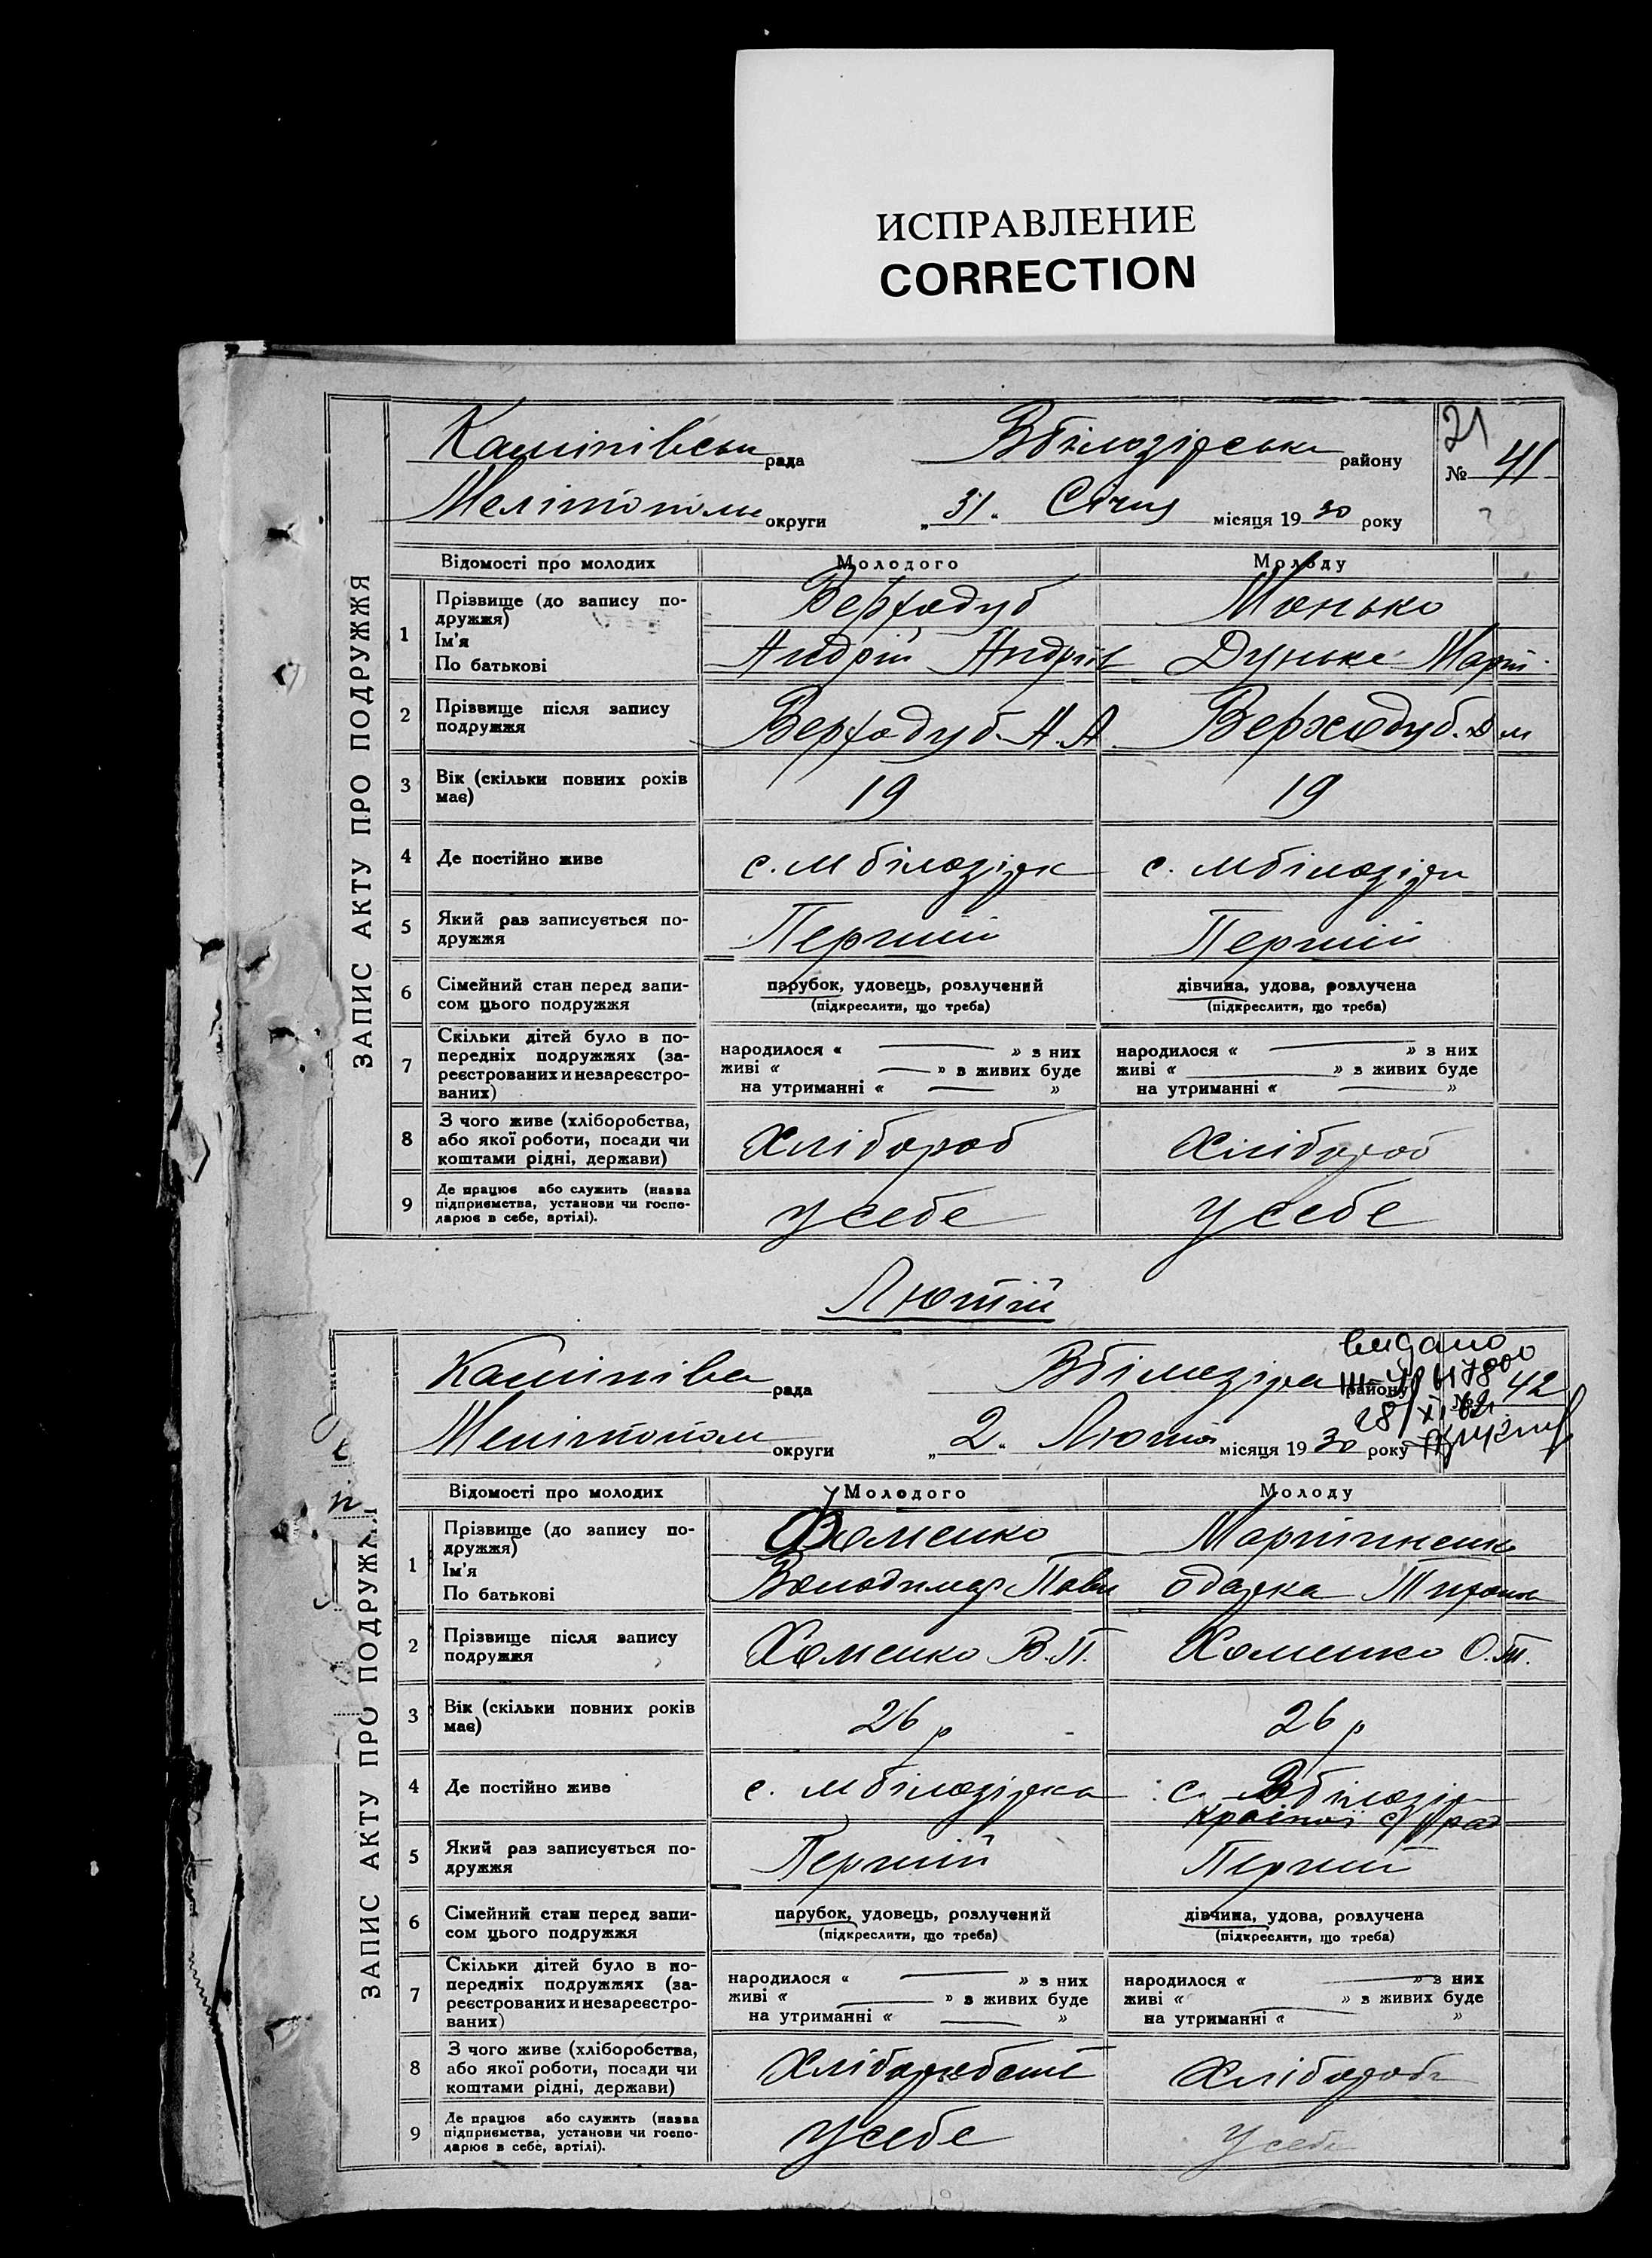 ИСПРАВЛЕНИЕ
CORRECTION
21
рада району № 41
Мелітополь округи „31" Січня місяця 1930 року
ЗАПИС АКТУ ПРО ПОДРУЖЖЯ
Відомості про молодих Молодого Молоду
1 Прізвище (до запису подружжя) Верходуб Манько
Ім'я
По батькові Андрій Андрів Дунька
2 Прізвище після запису подружжя Верходуб А. А. Верходуб. Д м
3 Вік (скільки повних рохів має) 19 19
4 Де постійно живе с. М білозірк с. М білозірк
5 Який раз записується подружжя Перший Перший
6 Сімейний стан перед записом цього подружжя парубок, удовець, розлучений дівчина, удова, розлучена
(підкреслити, що треба) (підкреслити, що треба)
7 Скільки дітей було в попередніх подружжях (зареєстрованих и незареєстрованих) народилося « » з них народилося « » з них
живі « » в живих буде живі « » в живих буде
на утриманні « » на утриманні « »
8 З чого живе (хліборобства, або якої роботи, посади чи коштами рідні, держави) Хлібороб Хлібороб
9 Де працює або служить (назва підприємства, установи чи господарює в себе, артілі). у себе у себе
Лютій
видано
рада району № 42
28/XI
округи „2" місяця 1930 року
ЗАПИС АКТУ ПРО ПОДРУЖЖЯ
Відомості про молодих Молодого Молоду
1 Прізвище (до запису подружжя) Хоменко
Ім'я
По батькові Володимар Павл одарка
2 Прізвище після запису подружжя Хоменко В. П. Хоменко О. Т.
3 Вік (скільки повних років має) 26 р 26 р
4 Де постійно живе с. М білозірка с. В білозір
с/рад
5 Який раз записується подружжя Перший Перший
6 Сімейний стан перед записом цього подружжя парубок, удовець, розлучений дівчина, удова, розлучена
(підкреслити, що треба) (підкреслити, що треба)
7 Скільки дітей було в попередніх подружжях (зареєстрованих и незареєстрованих) народилося « » з них народилося « » з них
живі « » в живих буде живі « » в живих буде
на утриманні « » на утриманні « »
8 З чого живе (хліборобства, або якої роботи, посади чи коштами рідні, держави) Хлібороб
9 Де працює або служить (назва підприємства, установи чи господарює в себе, артілі). у себе у себе